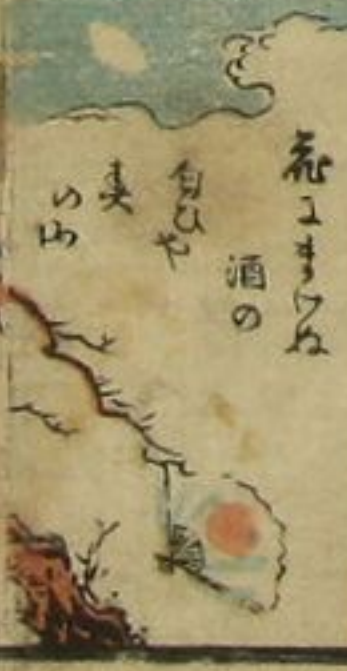 花にまけぬ
酒の
匂ひや
春
の山